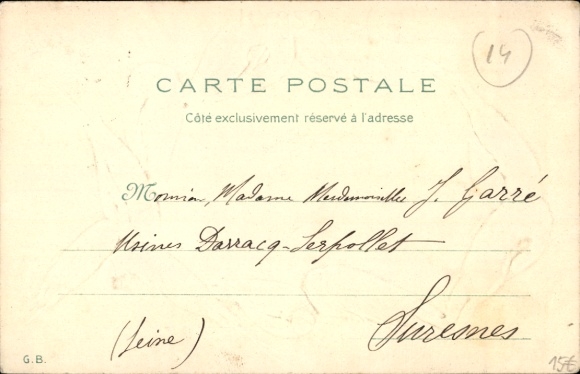 14
CARTE POSTALE
Côté exclusivement réservé à l'adresse
Monsieur, Madame Mesdemoiselles J. Garré
Usines Darracq-Serpollet
Suresnes
(Seine)
G.B.
15€